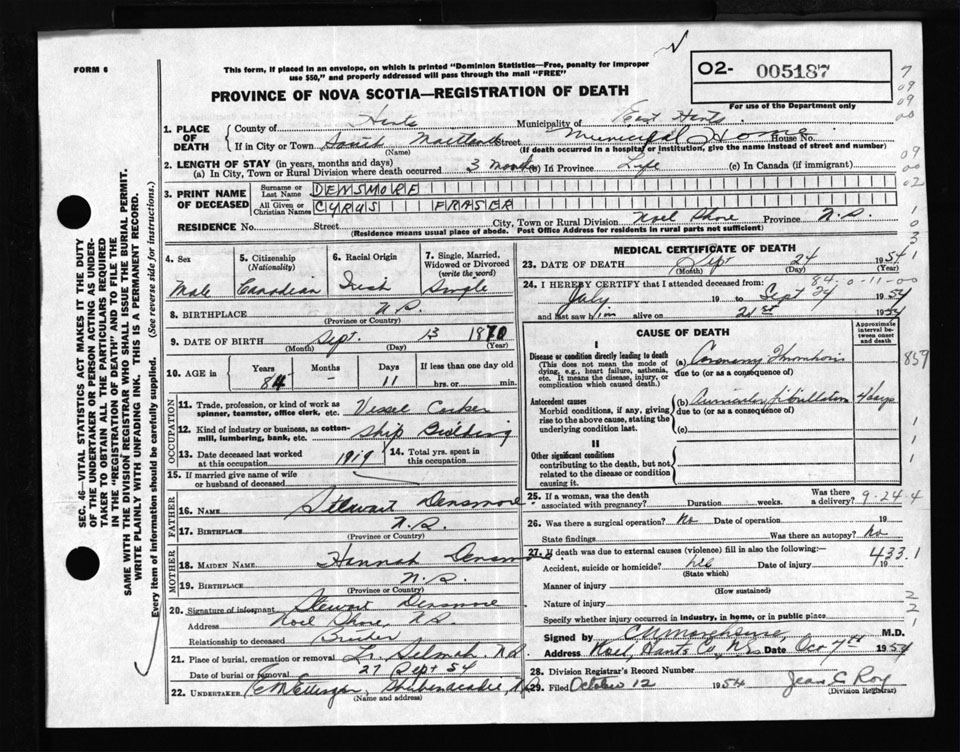 FORM 6
This form, if placed in an envelope, on which is printed "Dominion Statistics—Free, penalty for improper
use $50," and properly addressed will pass through the mail "FREE"
O2- 005187
For use of the Department only
PROVINCE OF NOVA SCOTIA—REGISTRATION OF DEATH
1. PLACE OF DEATH
County of Hants Municipality of East Hants
If in City or Town South Maitland Street Municipal Home House No.
(Name) (If death occurred in a hospital or institution, give the name instead of street and number)
2. LENGTH OF STAY (in years, months and days)
(a) In City, Town or Rural Division where death occurred 3 months (b) In Province Life (c) In Canada (if immigrant)
3. PRINT NAME OF DECEASED
Surname or Last Name DENSMORE
All Given or Christian Names CYRUS FRASER
RESIDENCE No. Street City, Town or Rural Division Noel Shore Province N.S.
(Residence means usual place of abode. Post Office Address for residents in rural parts not sufficient)
4. Sex Male
5. Citizenship (Nationality) Canadian
6. Racial Origin Irish
7. Single, Married, Widowed or Divorced (write the word) Single
8. BIRTHPLACE N.S.
(Province or Country)
9. DATE OF BIRTH Sept. 13 1870
(Month) (Day) (Year)
10. AGE in Years 84 Months – Days 11 If less than one day
hrs. or min.
OCCUPATION
11. Trade, profession, or kind of work as
spinner, teamster, office clerk, etc. Vessel Corker
12. Kind of industry or business, as cotton-
mill, lumbering, bank, etc. Ship Building
13. Date deceased last worked
at this occupation 1919
14. Total yrs. spent in
this occupation
15. If married give name of wife
or husband of deceased
FATHER
16. NAME Stewart Densmore
17. BIRTHPLACE N.S.
(Province or Country)
MOTHER
18. MAIDEN NAME Hannah Densm
19. BIRTHPLACE N.S.
(Province or Country)
20. Signature of informant Stewart Densmore
Address Noel Shore, N.S.
Relationship to deceased Brother
21. Place of burial, cremation or removal Lr. Selmah N.S.
Date of burial or removal 27 Sept 54
22. UNDERTAKER Shubenacadie, N.S.
(Name and address)
MEDICAL CERTIFICATE OF DEATH
23. DATE OF DEATH Sept 24 1954
(Month) (Day) (Year)
84-0-11-00
24. I HEREBY CERTIFY that I attended deceased from:
July 19 to Sept 24 1954
and last saw him alive on 21st 1954
CAUSE OF DEATH
Approximate interval between onset and death
I
Disease or condition directly leading to death
(This does not mean the mode of dying, e.g., heart failure, asthenia, etc. It means the disease, injury, or complication which caused death.)
(a) Coronary Thrombosis
due to (or as a consequence of)
Antecedent causes
Morbid conditions, if any, giving rise to the above cause, stating the underlying condition last.
(b) Auricular fibrillation 4 days
due to (or as a consequence of)
(c)
II
Other significant conditions
contributing to the death, but not related to the disease or condition causing it.
25. If a woman, was the death
associated with pregnancy? Duration weeks. Was there
a delivery?
9-24-4
26. Was there a surgical operation? No Date of operation 19
State findings Was there an autopsy? No
27. If death was due to external causes (violence) fill in also the following:—
Accident, suicide or homicide? Date of injury 19
(State which)
433.1
Manner of injury
(How sustained)
Nature of injury
Specify whether injury occurred in industry, in home, or in public place
Signed by M.D.
Address Noel, Hants Co., N.S. Date Oct 7th 1954
28. Division Registrar's Record Number
29. Filed October 12 1954 Jean C Roy
(Division Registrar)
SEC. 46—VITAL STATISTICS ACT MAKES IT THE DUTY
OF THE UNDERTAKER OR PERSON ACTING AS UNDER-
TAKER TO OBTAIN ALL THE PARTICULARS REQUIRED
IN THE "REGISTRATION OF DEATH" AND TO FILE THE
SAME WITH THE DIVISION REGISTRAR WHO SHALL ISSUE THE BURIAL PERMIT.
WRITE PLAINLY WITH UNFADING INK. THIS IS A PERMANENT RECORD.
Every item of information should be carefully supplied. (See reverse side for instructions.)